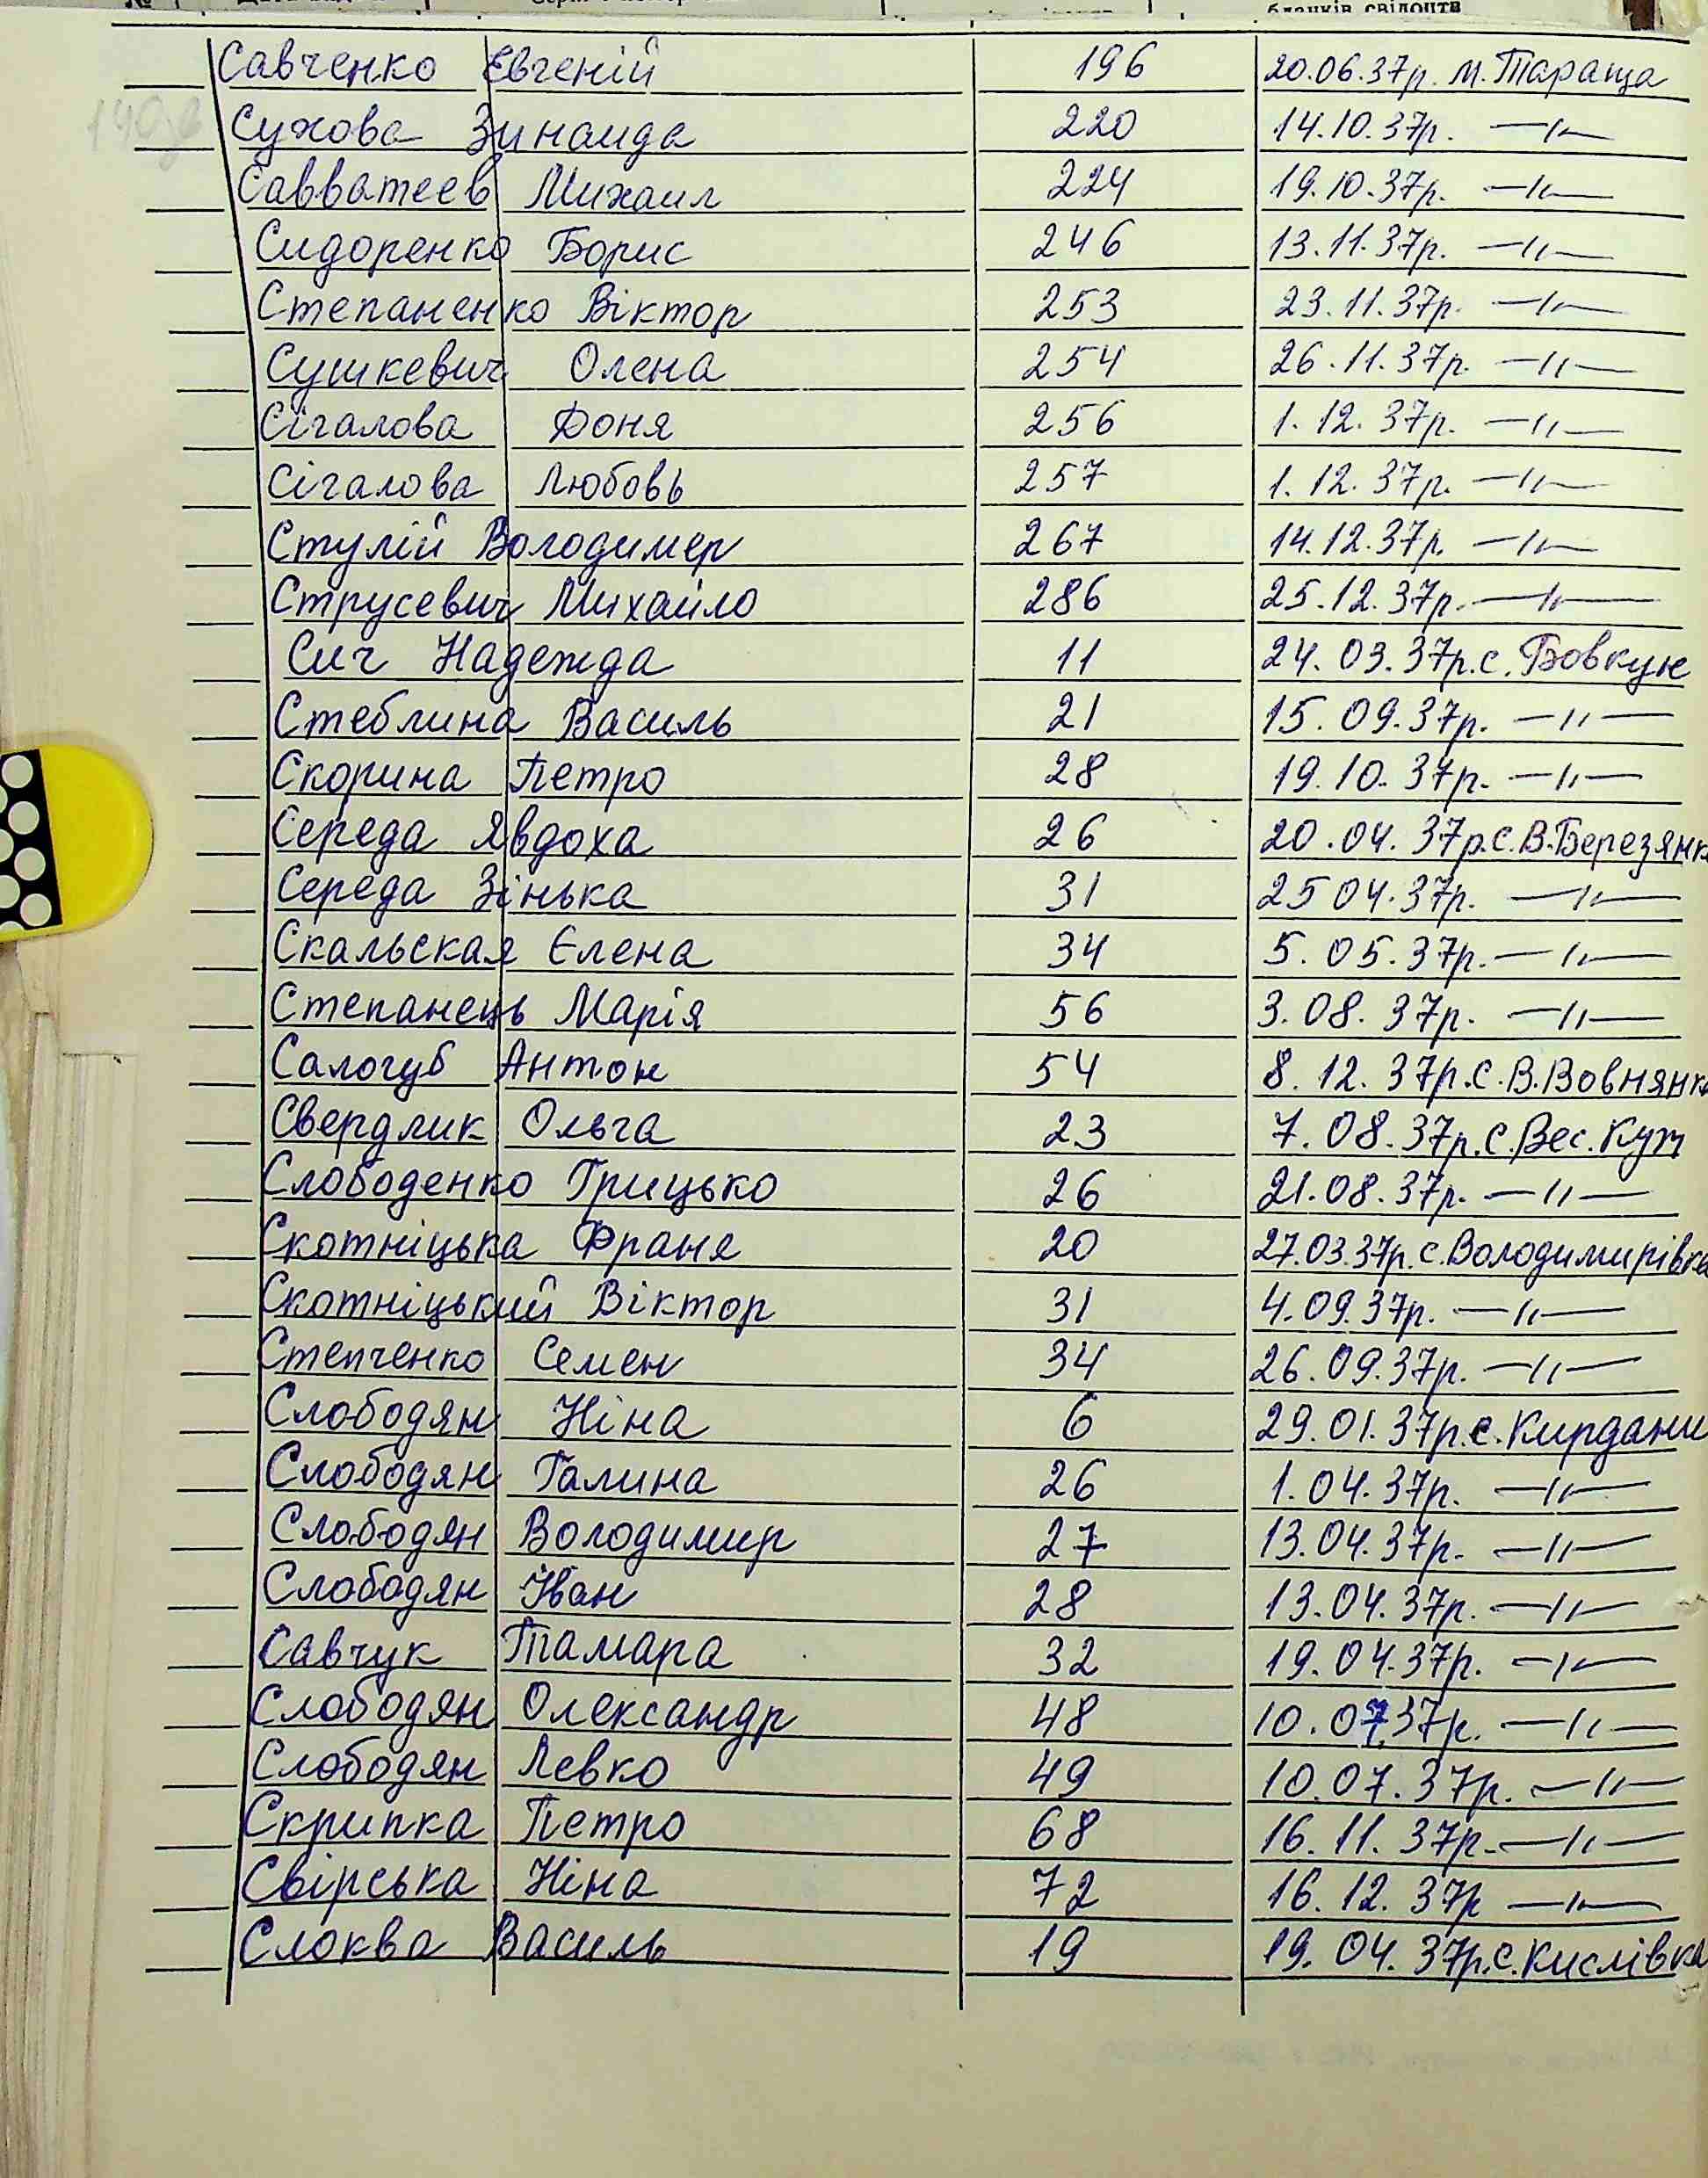 бланків свідоцтв
Савченко Євгеній 196 20.06.37р. м. Тараща
Сухова Зинаида 220 14.10.37р. —〃—
Савватеев Михаил 224 19.10.37р. —〃—
Сидоренко Борис 246 13.11.37р. —〃—
Степаненко Віктор 253 23.11.37р. —〃—
Сушкевич Олена 254 26.11.37р. —〃—
Сігалова Доня 256 1.12.37р. —〃—
Сігалова Любовь 257 1.12.37р. —〃—
Стулій Володимер 267 14.12.37р. —〃—
Струсевич Михайло 286 25.12.37р. —〃—
Сич Надежда 11 24.03.37р. с. Бовкун
Стеблина Василь 21 15.09.37р. —〃—
Скорина Петро 28 19.10.37р. —〃—
Середа Явдоха 26 20.04.37р. с. В. Березянк
Середа Зінька 31 25 04.37р. —〃—
Скальская Єлена 34 5.05.37р. —〃—
Степанець Марія 56 3.08.37р. —〃—
Салогуб Антон 54 8.12.37р. с. В. Вовнянк
Свердлик Ольга 23 7.08.37р. с. Вес. Кут
Слободенко Грицько 26 21.08.37р. —〃—
Скотніцька Франя 20 27.03.37р. с. Володимирівка
Скотніцький Віктор 31 4.09.37р. —〃—
Степченко Семен 34 26.09.37р. —〃—
Слободян Ніна 6 29.01.37р. с. Кирдани
Слободян Галина 26 1.04.37р. —〃—
Слободян Володимир 27 13.04.37р. —〃—
Слободян Іван 28 13.04.37р. —〃—
Савчук Тамара 32 19.04.37р. —〃—
Слободян Олександр 48 10.07.37р. —〃—
Слободян Левко 49 10.07.37р. —〃—
Скрипка Петро 68 16.11.37р. —〃—
Свірська Ніна 72 16.12.37р —〃—
Слоква Василь 19 19.04.37р. с. Кислівка